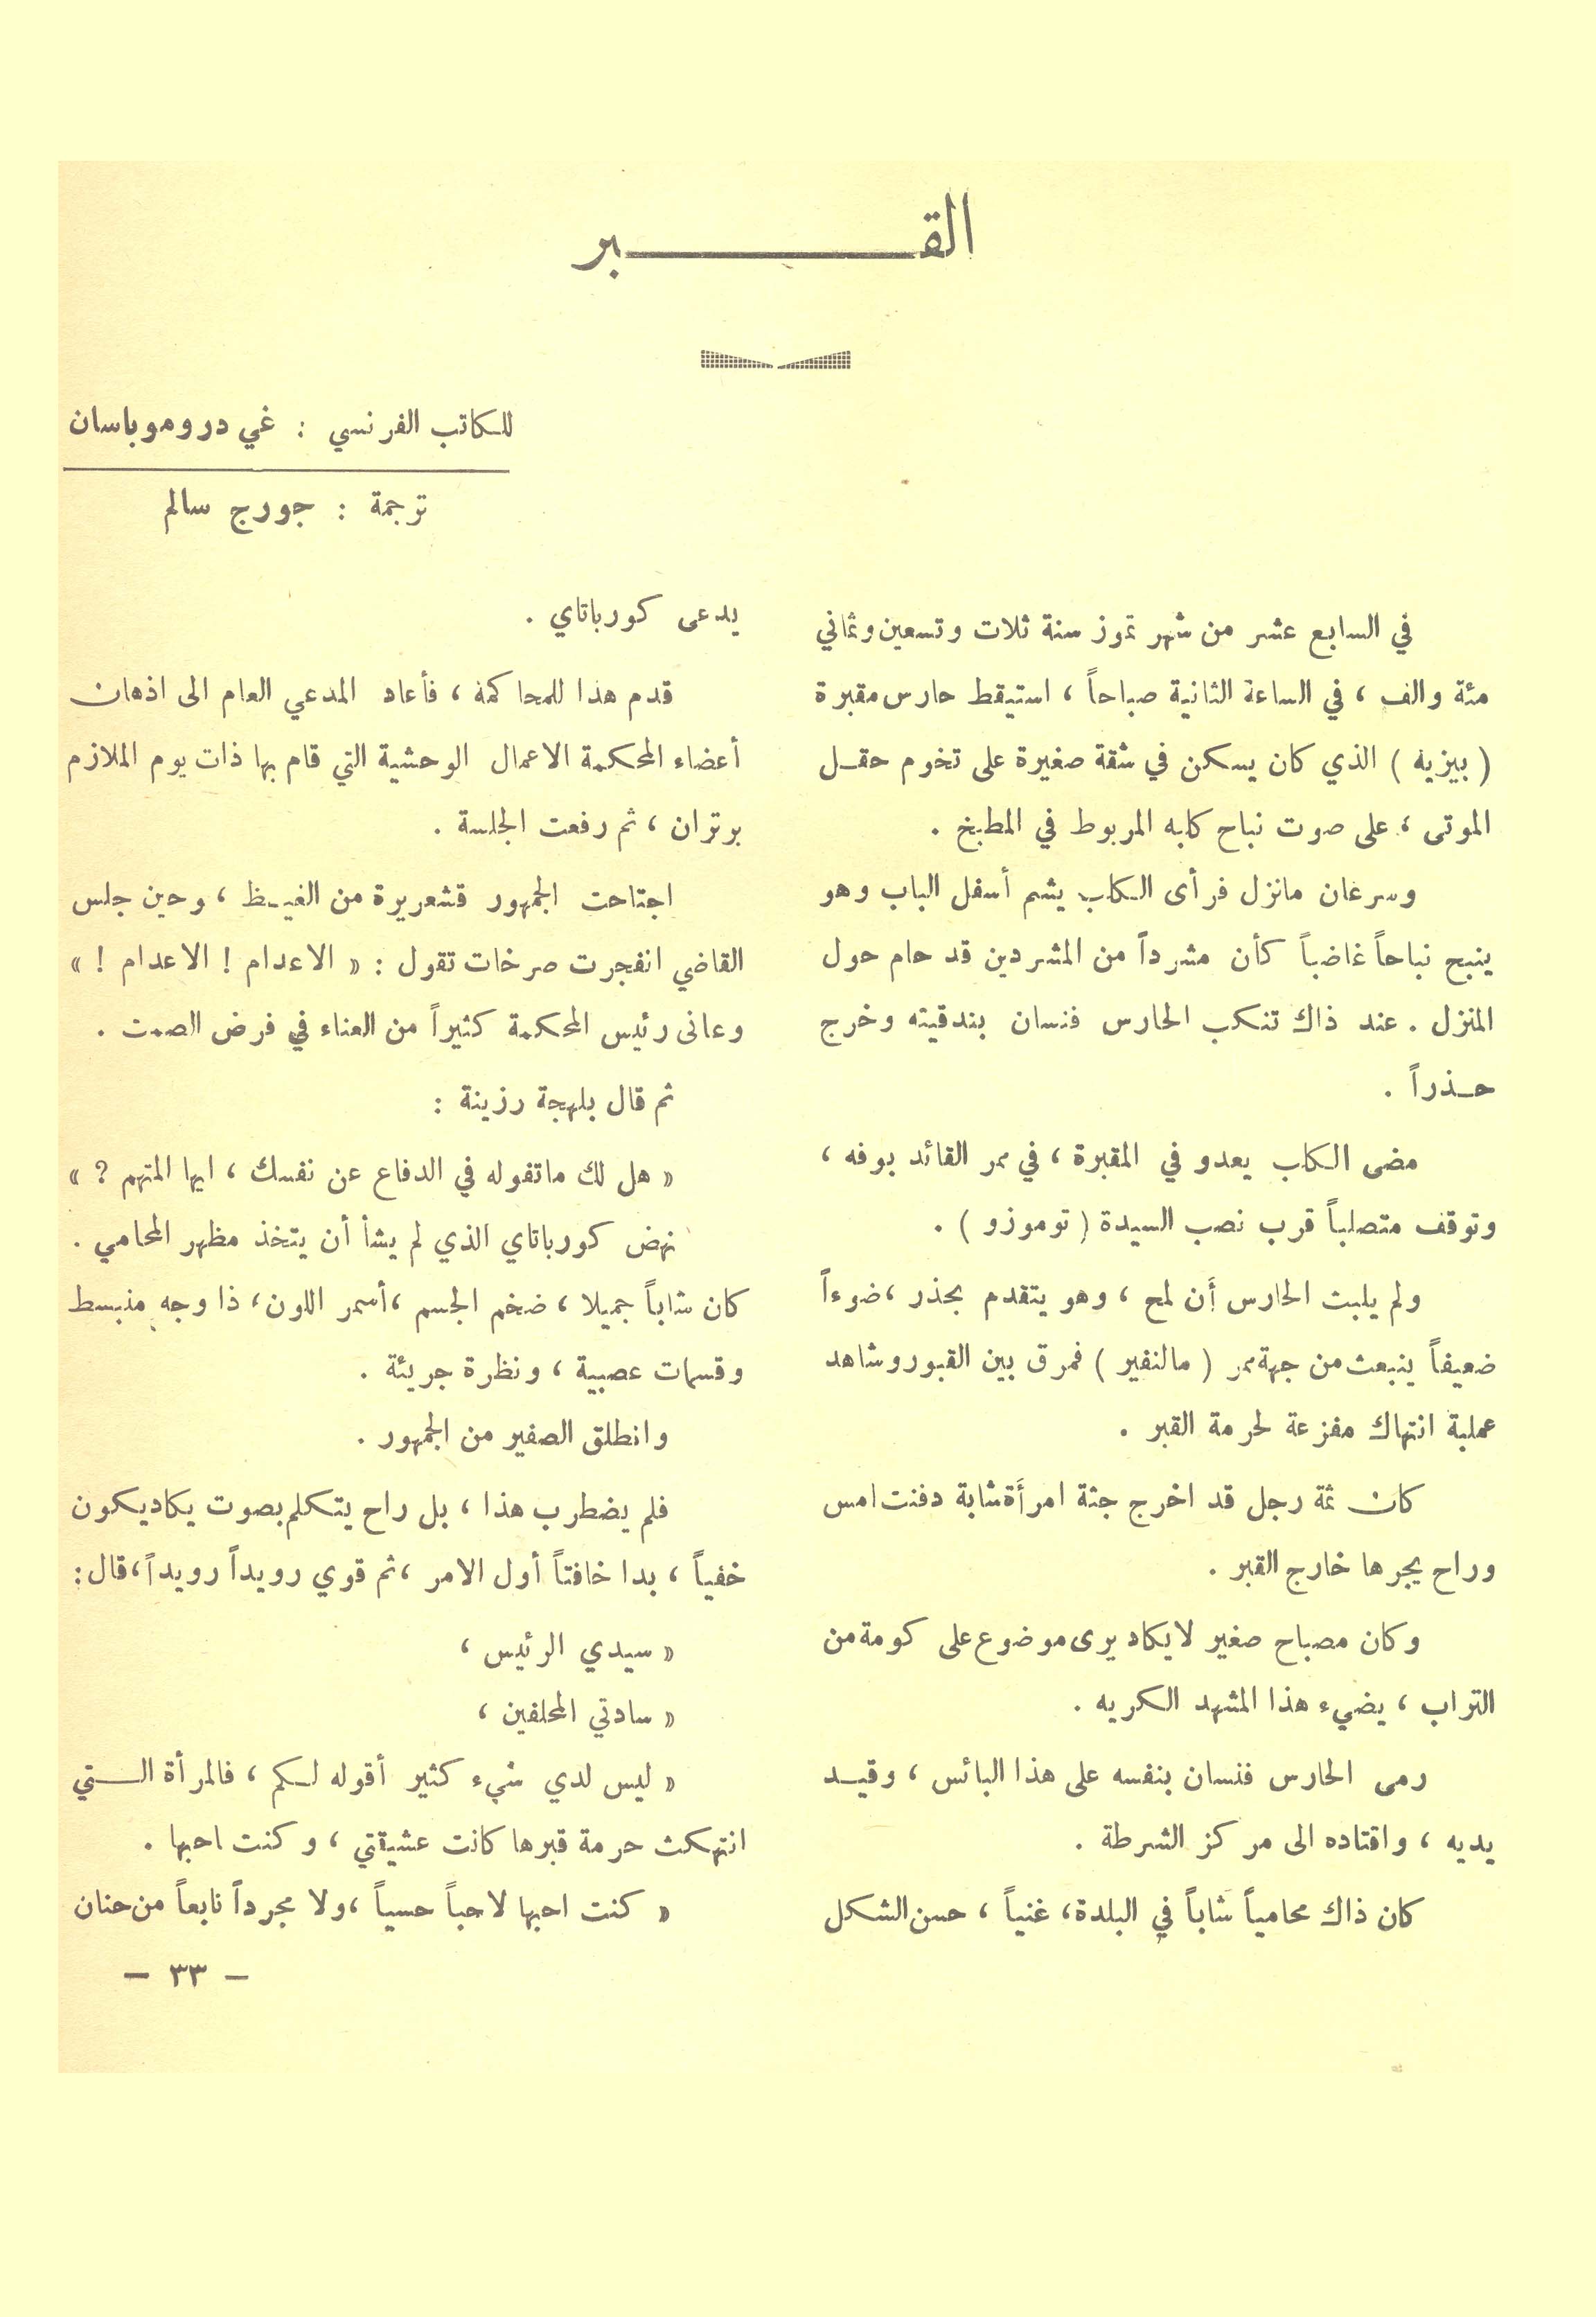 القبر
للكاتب الفرنسي : غي دروموباسان
ترجمة : جورج سالم
في السابع عشر من شهر تموز سنة ثلاث وتسعين وثماني
مئة والف ، في الساعة الثانية صباحاً ، استيقظ حارس مقبرة
( بيزيه ) الذي كان يسكن في شقة صغيرة على تخوم حقل
الموتى ، على صوت نباح كلبه المربوط في المطبخ .
وسرعان مانزل فرأى الكلب يشم أسفل الباب وهو
ينبح نباحاً غاضباً كأن مشرداً من المشردين قد حام حول
المنزل . عند ذاك تنكب الحارس فنسان بندقيته وخرج
حذراً .
مضى الكلب يعدو في المقبرة ، في ممر القائد بوفه ،
وتوقف متصلباً قرب نصب السيدة ( توموزو ) .
ولم يلبث الحارس أن لمح ، وهو يتقدم بحذر ، ضوءاً
ضعيفاً ينبعث من جهة ممر ( مالنفير ) فمرق بين القبور وشاهد
عملية انتهاك مفزعة لحرمة القبر .
كان ثمة رجل قد اخرج جثة امرأة شابة دفنت امس
وراح يجرها خارج القبر .
وكان مصباح صغير لايكاد يرى موضوع على كومة من
التراب ، يضيء هذا المشهد الكريه .
رمى الحارس فنسان بنفسه على هذا البائس ، وقيد
يديه ، واقتاده الى مركز الشرطة .
كان ذاك محامياً شاباً في البلدة، غنياً ، حسن الشكل
يدعى كورباتاي .
قدم هذا للمحاكمة ، فأعاد المدعي العام الى اذهان
أعضاء المحكمة الاعمال الوحشية التي قام بها ذات يوم الملازم
برتران ، ثم رفعت الجلسة .
اجتاحت الجمهور قشعريرة من الغيظ ، وحين جلس
القاضي انفجرت صرخات تقول : « الاعدام ! الاعدام ! »
وعانى رئيس المحكمة كثيراً من العناء في فرض الصمت .
ثم قال بلهجة رزينة :
« هل لك ماتقوله في الدفاع عن نفسك ، ايها المتهم ? »
نهض كورباتاي الذي لم يشأ أن يتخذ مظهر المحامي .
كان شاباً جميلا ، ضخم الجسم ، أسمر اللون، ذا وجه منبسط
وقسمات عصبية ، ونظرة جريئة .
وانطلق الصفير من الجمهور .
فلم يضطرب هذا ، بل راح يتكلم بصوت يكاد يكون
خفياً ، بدا خافتاً أول الامر ، ثم قوي رويداً رويداً، قال :
« سيدي الرئيس ،
« سادتي المحلفين ،
« ليس لدي شيء كثير أقوله لكم ، فالمرأة التي
انتهكت حرمة قبرها كانت عشيقتي ، وكنت احبها .
« كنت احبها لاحباً حسياً ، ولا مجرداً نابعاً من حنان
– ٣٣ –